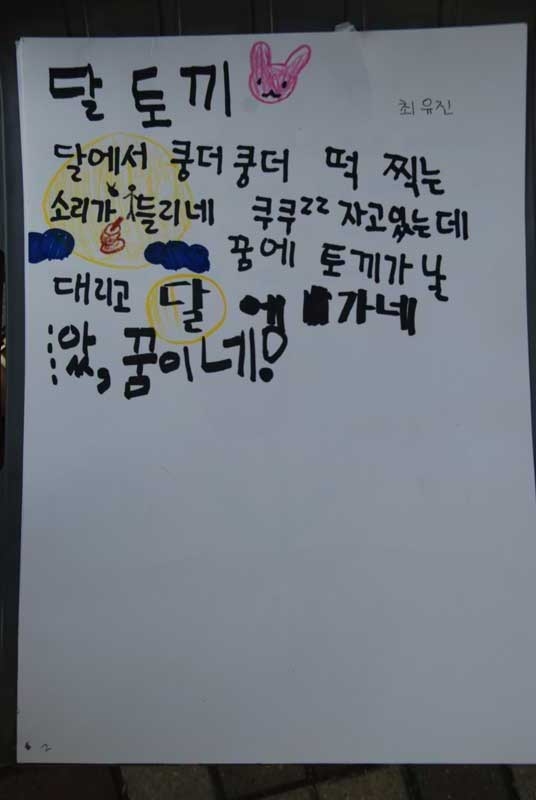 달 토끼
최유진
달에서 쿵더쿵더 떡 찍는
소리가 들리네 쿠쿠zz 자고있는데
꿈에 토끼가 날
대리고 달에 가네
앗, 꿈이네!